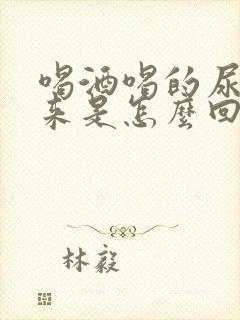 喝酒喝的尿
来是怎麼回
林毅